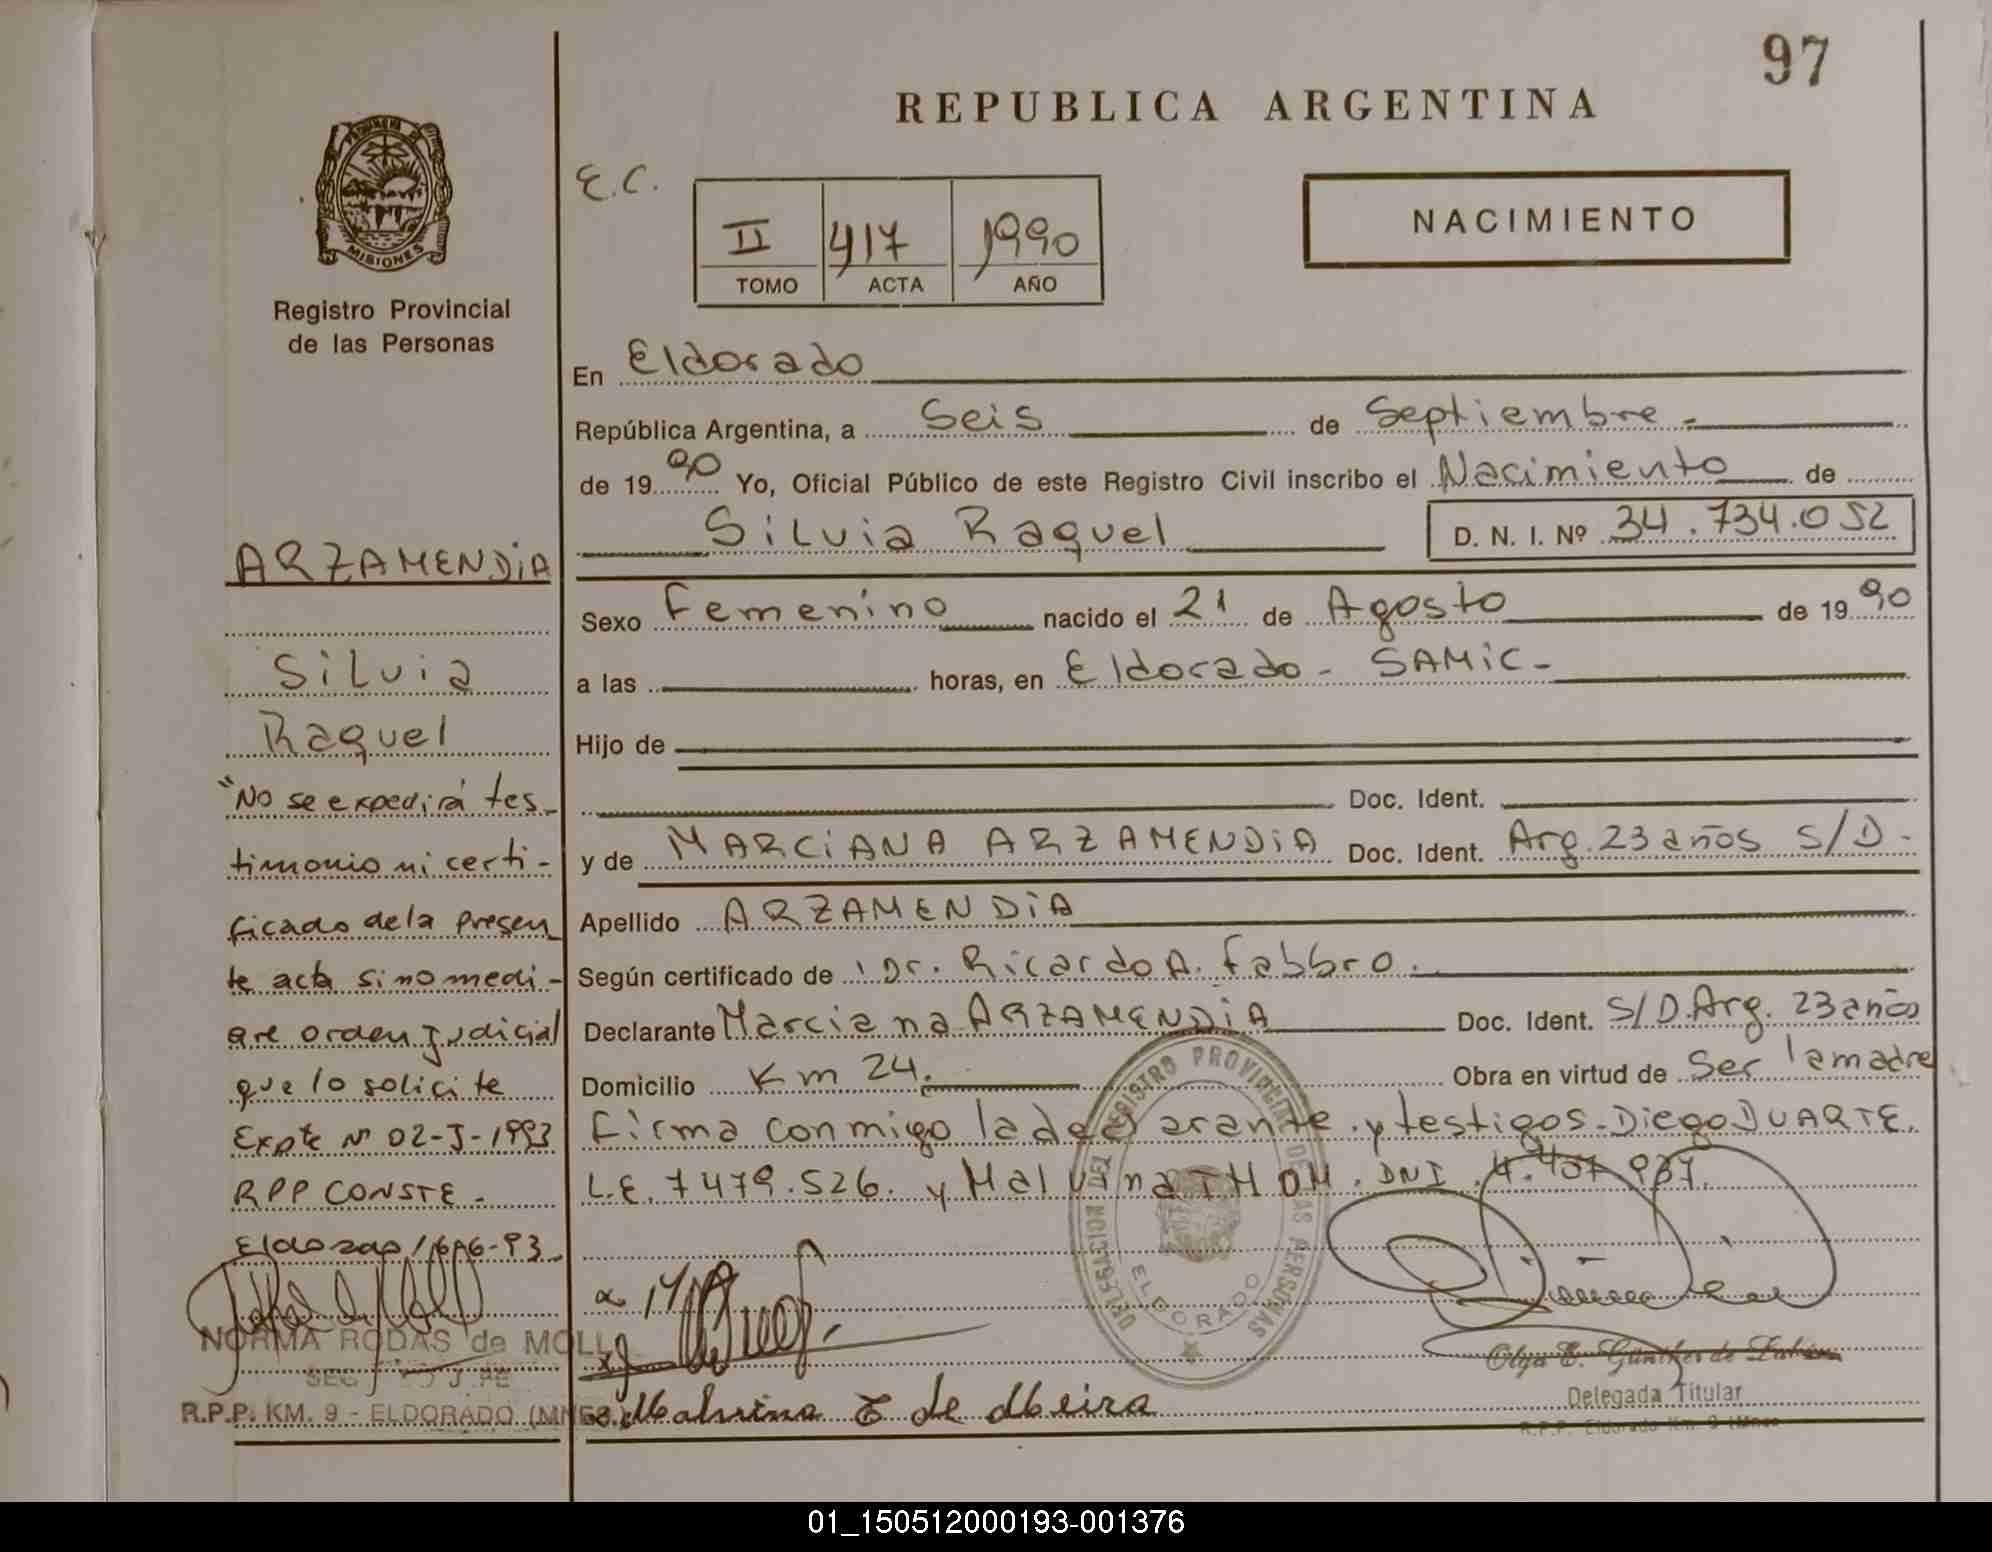 97
REPUBLICA ARGENTINA
PROVINCIA DE
MISIONES
Registro Provincial
de las Personas
E.C.
II 417 1990
TOMO ACTA AÑO
NACIMIENTO
En Eldorado
República Argentina, a Seis de Septiembre.-
de 1990 Yo, Oficial Público de este Registro Civil inscribo el Nacimiento de
Silvia Raquel D. N. I. Nº 34.734.052
Sexo Femenino nacido el 21 de Agosto de 1990
a las horas, en Eldorado - SAMiC-
Hijo de
Doc. Ident.
y de MARCiANA ARZAMENDiA Doc. Ident. Arg. 23 años S/D-
Apellido ARZAMENDiA
Según certificado de Dr. Ricardo A. Fabbro.
Declarante Marciana ARZAMENDiA Doc. Ident. S/D. Arg. 23 años
Domicilio Km 24. Obra en virtud de Ser la madre
Firma conmigo la declarante y testigos. Diego DUARTE.
L.E. 7479.526. y Malvina THOM. DNI. 4.407.937.
ARZAMENDiA
Silvia
Raquel
"No se expedirá tes-
timonio ni certi-
ficado de la presen
te acta sino medi-
are orden judicial
que lo solicite
Expte Nº 02-J-1993
RPP CONSTE.-
Eldorado 16-6-93
NORMA RODAS de MOLL
R.P.P. KM. 9 - ELDORADO (MNES.)
DELEGACION DEL REGISTRO PROVINCIAL DE LAS PERSONAS
ELDORADO
Malvina T de Meira
Olga E. Günther de
Delegada Titular
R.P.P. Eldorado Km. 9 (Mnes
01_150512000193-001376